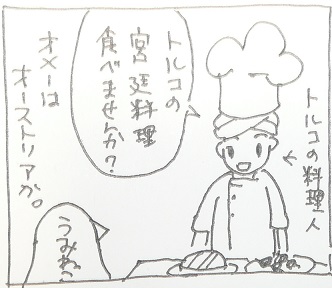 トルコの料理人
トルコの
宮廷料理
食べませんか?
オメーは
オーストリアか。
うみねこ